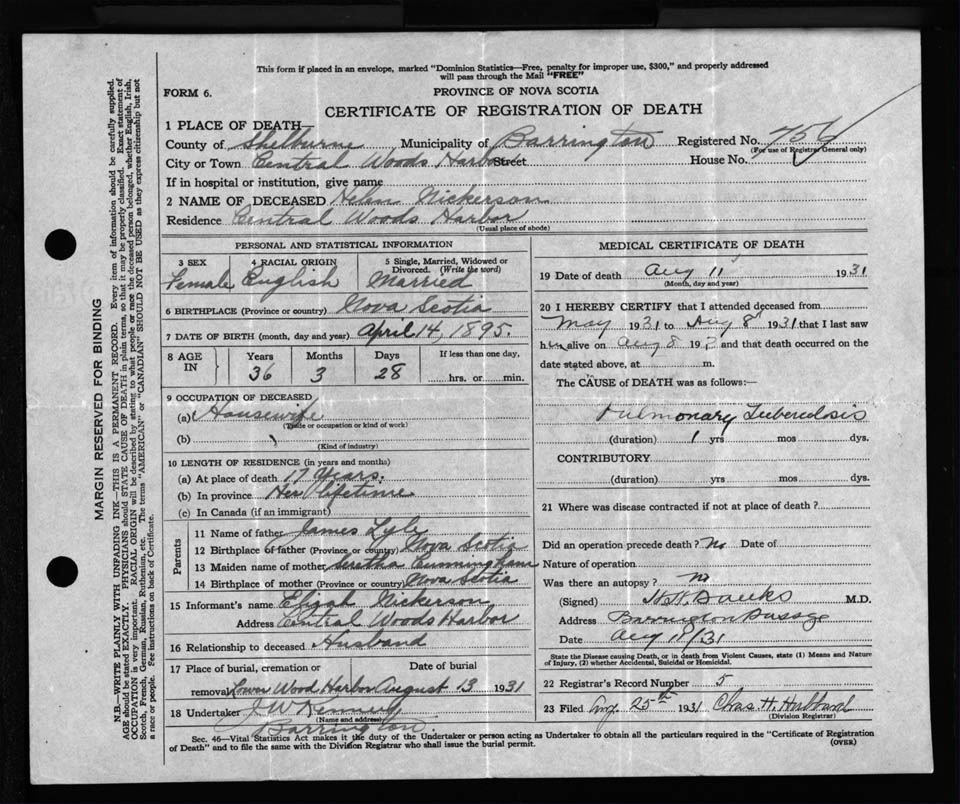 This form if placed in an envelope, marked "Dominion Statistics—Free, penalty for improper use, $300," and properly addressed
will pass through the Mail "FREE"
FORM 6.
PROVINCE OF NOVA SCOTIA
CERTIFICATE OF REGISTRATION OF DEATH
1 PLACE OF DEATH—
County of Shelburne Municipality of Barrington Registered No. 756
(For use of Registrar General only)
City or Town Central Woods Harbor Street House No.
If in hospital or institution, give name
2 NAME OF DECEASED Helen Nickerson
Residence Central Woods Harbor
(Usual place of abode)
PERSONAL AND STATISTICAL INFORMATION
3 SEX 4 RACIAL ORIGIN 5 Single, Married, Widowed or
Divorced. (Write the word)
Female English Married
6 BIRTHPLACE (Province or country) Nova Scotia
7 DATE OF BIRTH (month, day and year) April 14, 1895.
8 AGE IN Years Months Days If less than one day,
36 3 28 hrs. or min.
9 OCCUPATION OF DECEASED
(a) Housewife
(Trade or occupation or kind of work)
(b)
(Kind of industry)
10 LENGTH OF RESIDENCE (in years and months)
(a) At place of death 17 Years.
(b) In province Her lifetime
(c) In Canada (if an immigrant)
Parents
11 Name of father James Lyle
12 Birthplace of father (Province or country) Nova Scotia
13 Maiden name of mother Seretha Cunningham
14 Birthplace of mother (Province or country) Nova Scotia
15 Informant's name Elijah Nickerson
Address Central Woods Harbor
16 Relationship to deceased Husband
17 Place of burial, cremation or Date of burial
removal Lower Wood Harbor August 13 1931
18 Undertaker J W Kennedy
(Name and address)
Barrington
MEDICAL CERTIFICATE OF DEATH
19 Date of death Aug 11 1931
(Month, day and year)
20 I HEREBY CERTIFY that I attended deceased from
May 1931 to Aug 8 1931 that I last saw
her alive on Aug 8 193 and that death occurred on the
date stated above, at m.
The CAUSE of DEATH was as follows:—
Pulmonary Tuberculosis
(duration) 1 yrs mos dys.
CONTRIBUTORY
(duration) yrs. mos. dys.
21 Where was disease contracted if not at place of death?
Did an operation precede death? No Date of
Nature of operation
Was there an autopsy? no
(Signed) H.H. Banks M.D.
Address Barrington Passage
Date Aug 18/31
State the Disease causing Death, or in death from Violent Causes, state (1) Means and Nature
of Injury, (2) whether Accidental, Suicidal or Homicidal.
22 Registrar's Record Number 5
23 Filed Aug. 25th 1931 Chas. H. Hubbard
(Division Registrar)
Sec. 46—Vital Statistics Act makes it the duty of the Undertaker or person acting as Undertaker to obtain all the particulars required in the "Certificate of Registration
of Death" and to file the same with the Division Registrar who shall issue the burial permit.
(OVER)
MARGIN RESERVED FOR BINDING
N.B.—WRITE PLAINLY WITH UNFADING INK—THIS IS A PERMANENT RECORD. Every item of information should be carefully supplied.
AGE should be stated EXACTLY. PHYSICIANS should STATE CAUSE OF DEATH in plain terms, so that it may be properly classified. Exact statement of
OCCUPATION is very important. RACIAL ORIGIN will be described by stating to what people or race the deceased person belonged, whether English, Irish,
Scotch, French, German, Russian, Ruthenian, etc. The terms "AMERICAN" or "CANADIAN" SHOULD NOT BE USED as they express citizenship but not
a race or people. See instructions on back of Certificate.